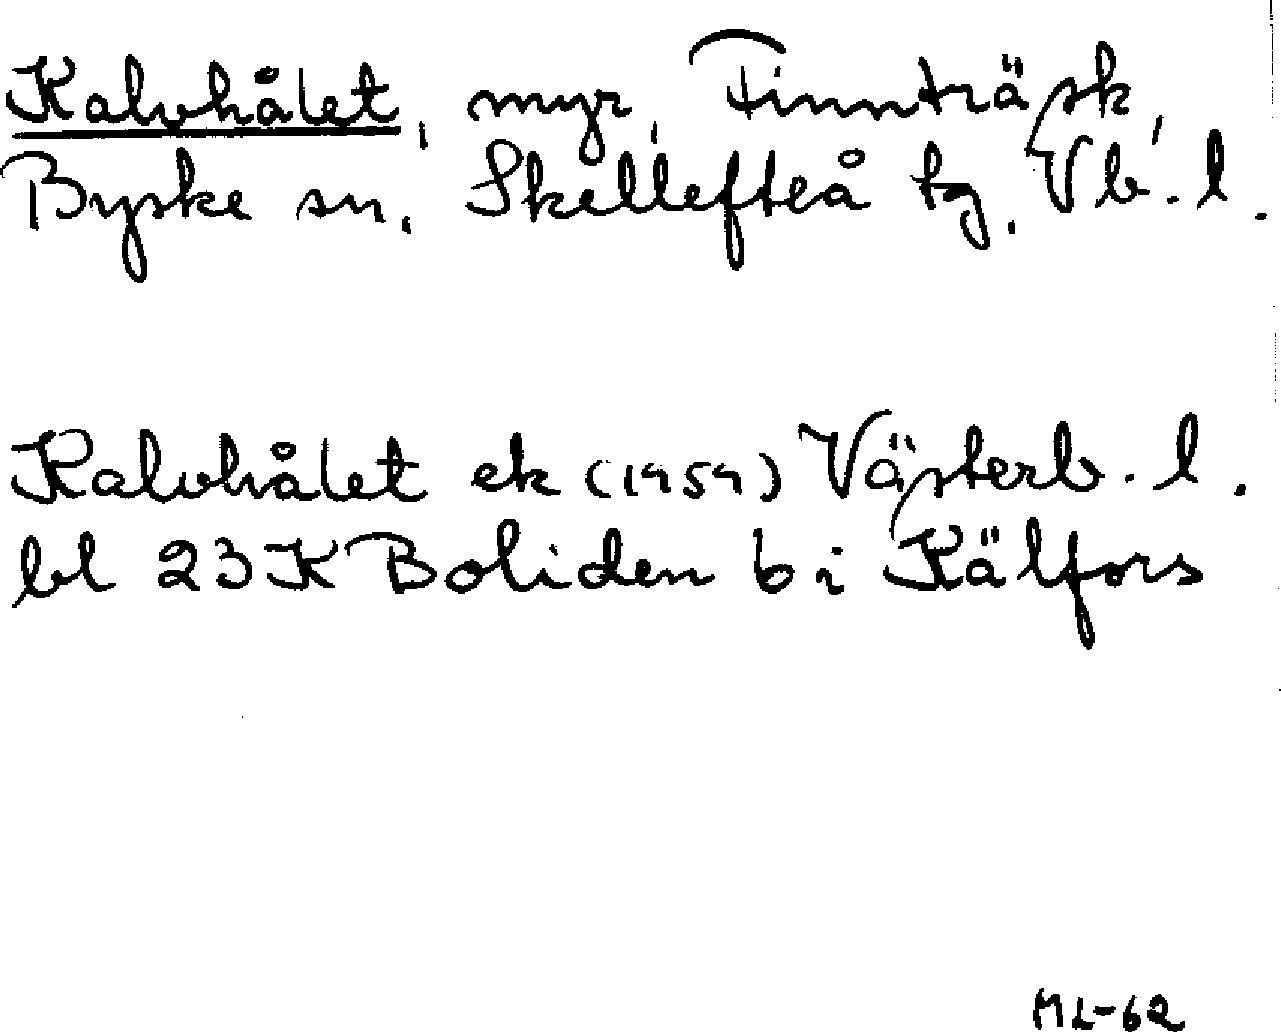 Kalvhålet, myr, Finnträsk,
Byske sn. Skellefteå tg. Vb. l.
Kalvhålet ek (1959) Västerb. l.
bl 23K Boliden b i Kälfors
ML-62